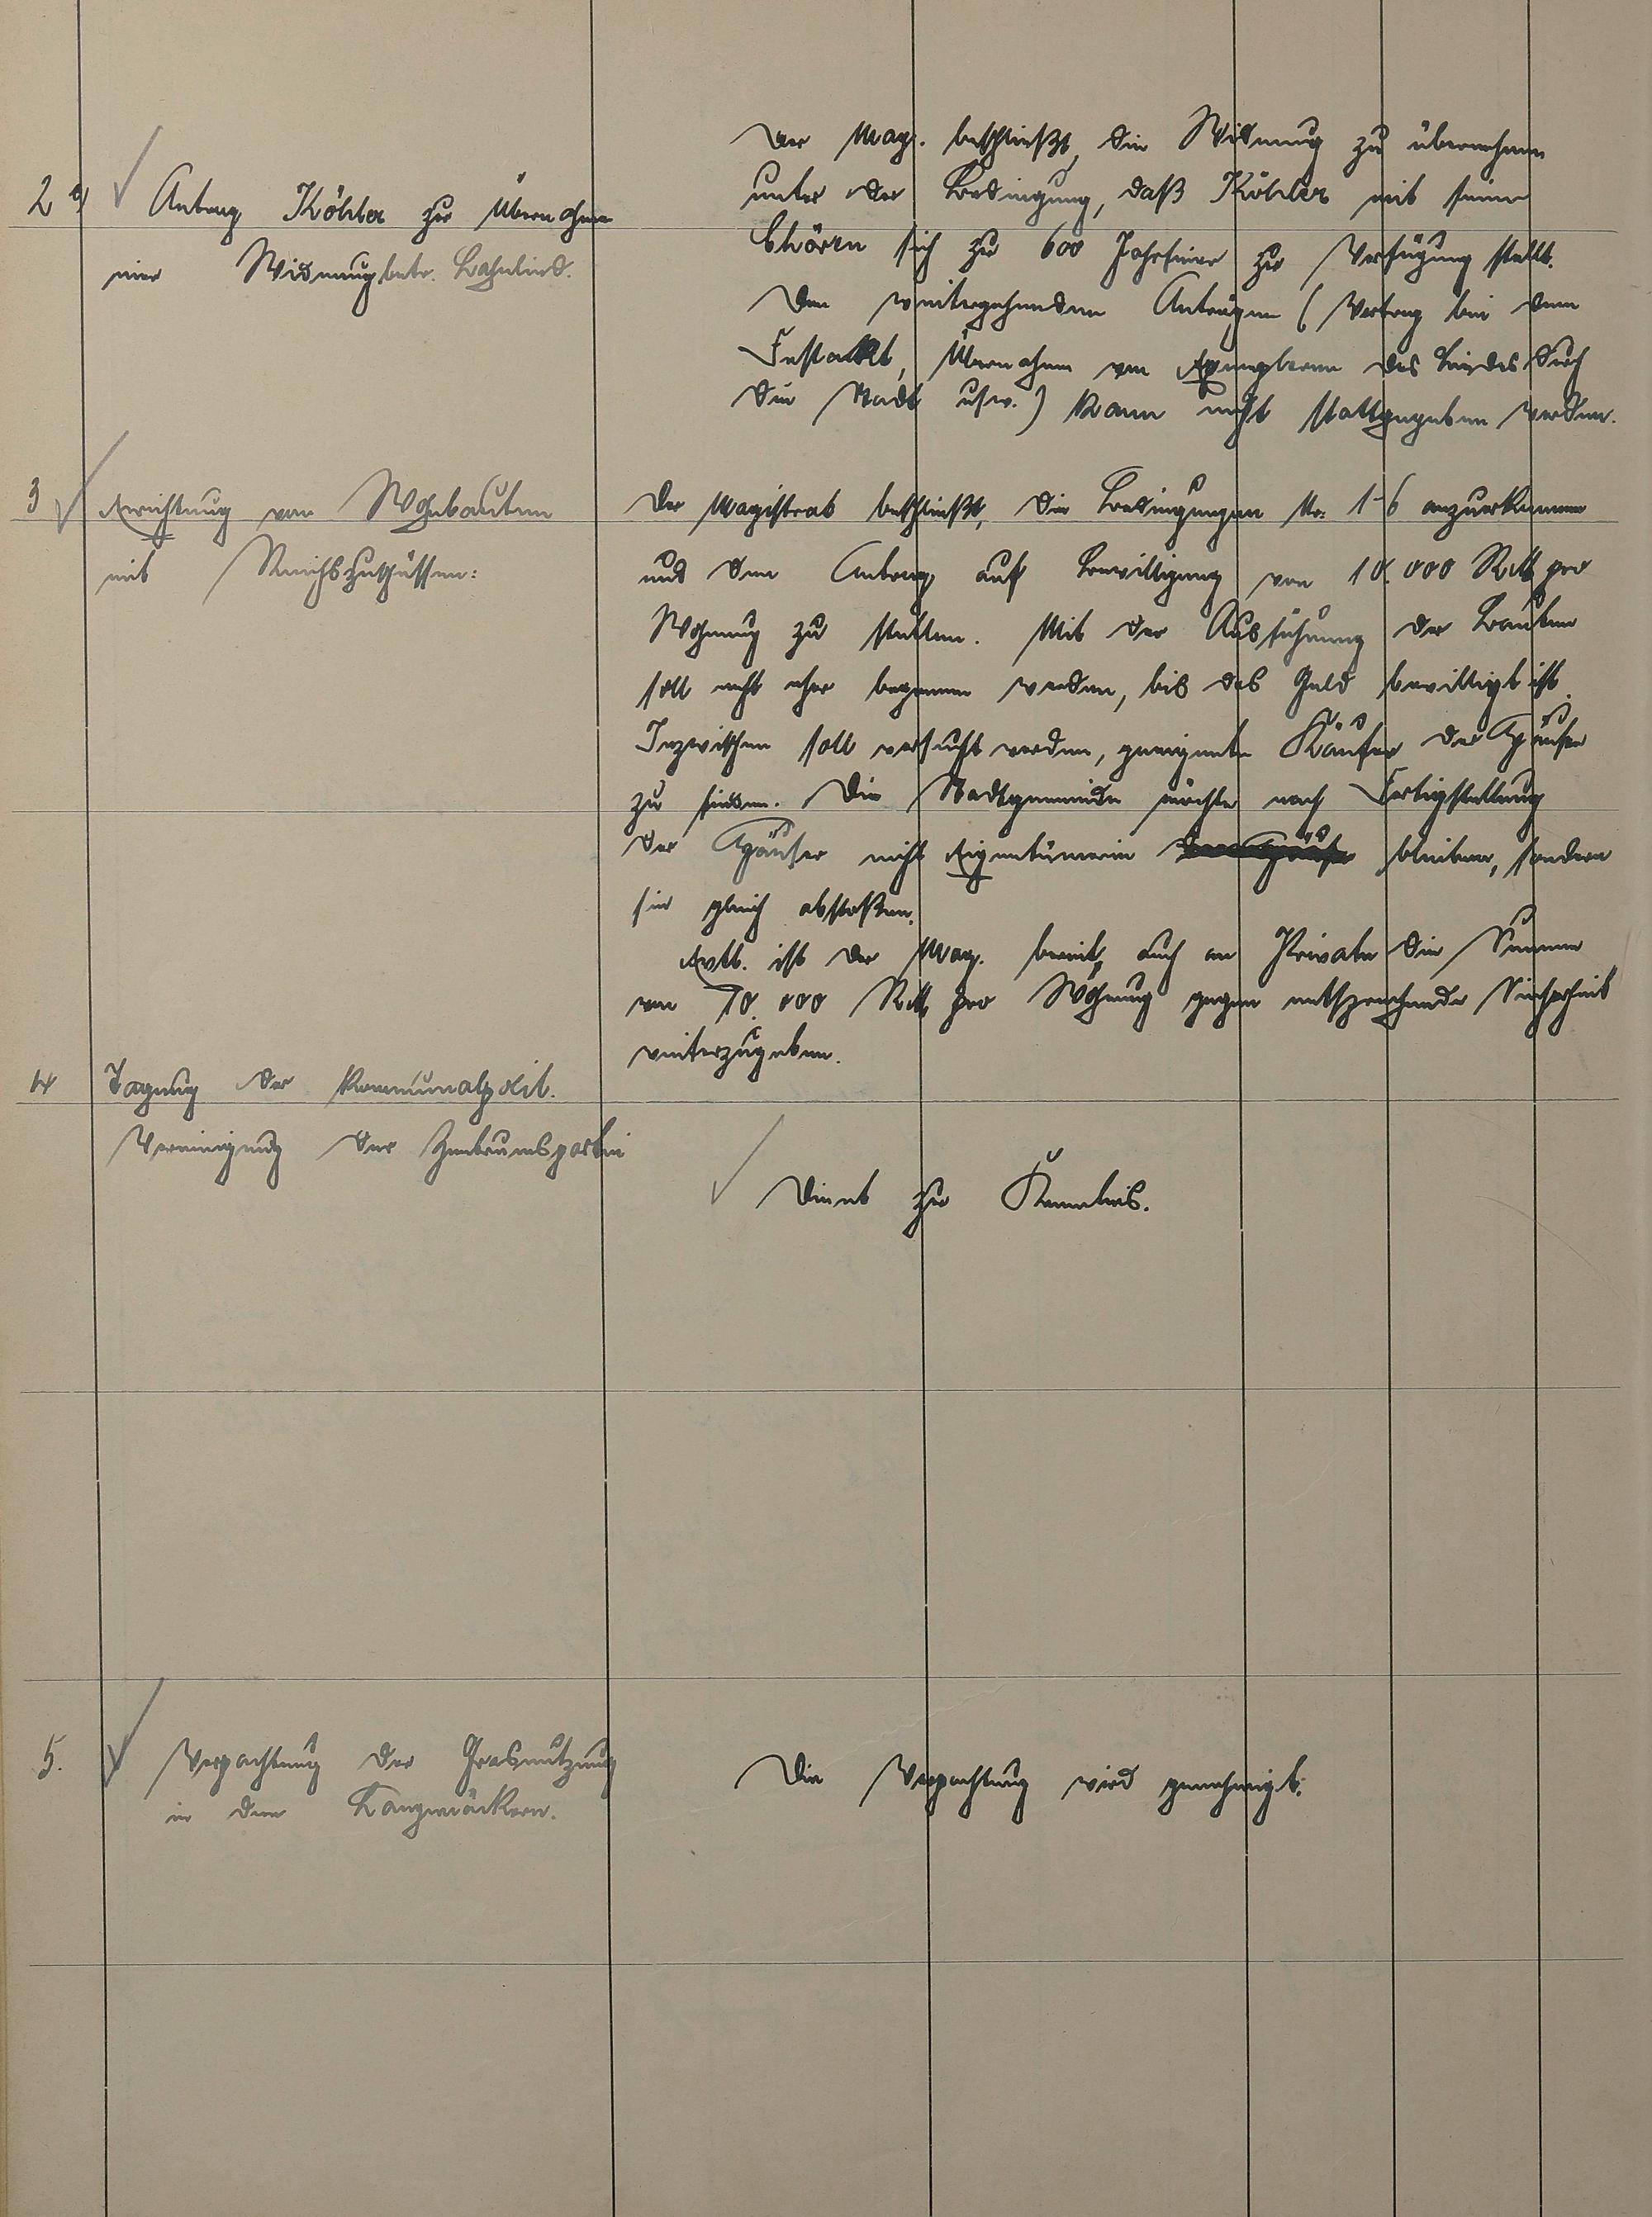 2 a) Antrag Köhler zur Übernahme
einer Widmung betr. Lahnlied.
Der Mag. beschließt, die Widmung zu übernehmen
unter der Bedingung, daß Köhler mit seinen
Chören sich zur 600 Jahrfeier zur Verfügung stellt.
Den weitergehenden Anträgen (Vortrag bei dem
Festakt, Übernahme von Exemplaren des Liedes durch
die Stadt usw.) kann nicht stattgegeben werden.
3 Errichtung von Wohnbauten
mit Reichszuschüssen:
Der Magistrat beschließt, die Bedingungen Nr. 1-6 anzuerkennen
und den Antrag auf Bewilligung von 10.000 RM pro
Wohnung zu stellen. Mit der Ausführung der Bauten
soll nicht eher begonnen werden, bis das Geld bewilligt ist.
Inzwischen soll versucht werden, geeignete Käufer der Häuser
zu finden. Die Stadtgemeinde möchte nach Fertigstellung
der Häuser nicht Eigentümerin bleiben, sondern
sie gleich abstoßen.
Evtl. ist der Mag. bereit, auch an Private die Summe
von 10.000 RM pro Wohnung gegen entsprechende Sicherheit
weiterzugeben.
4 Tagung der Kommunalpolit.
Vereinigung der Zentrumspartei
Dient zur Kenntnis.
5. Verpachtung der Grasnutzung
in den Langenäckern.
Die Verpachtung wird genehmigt.